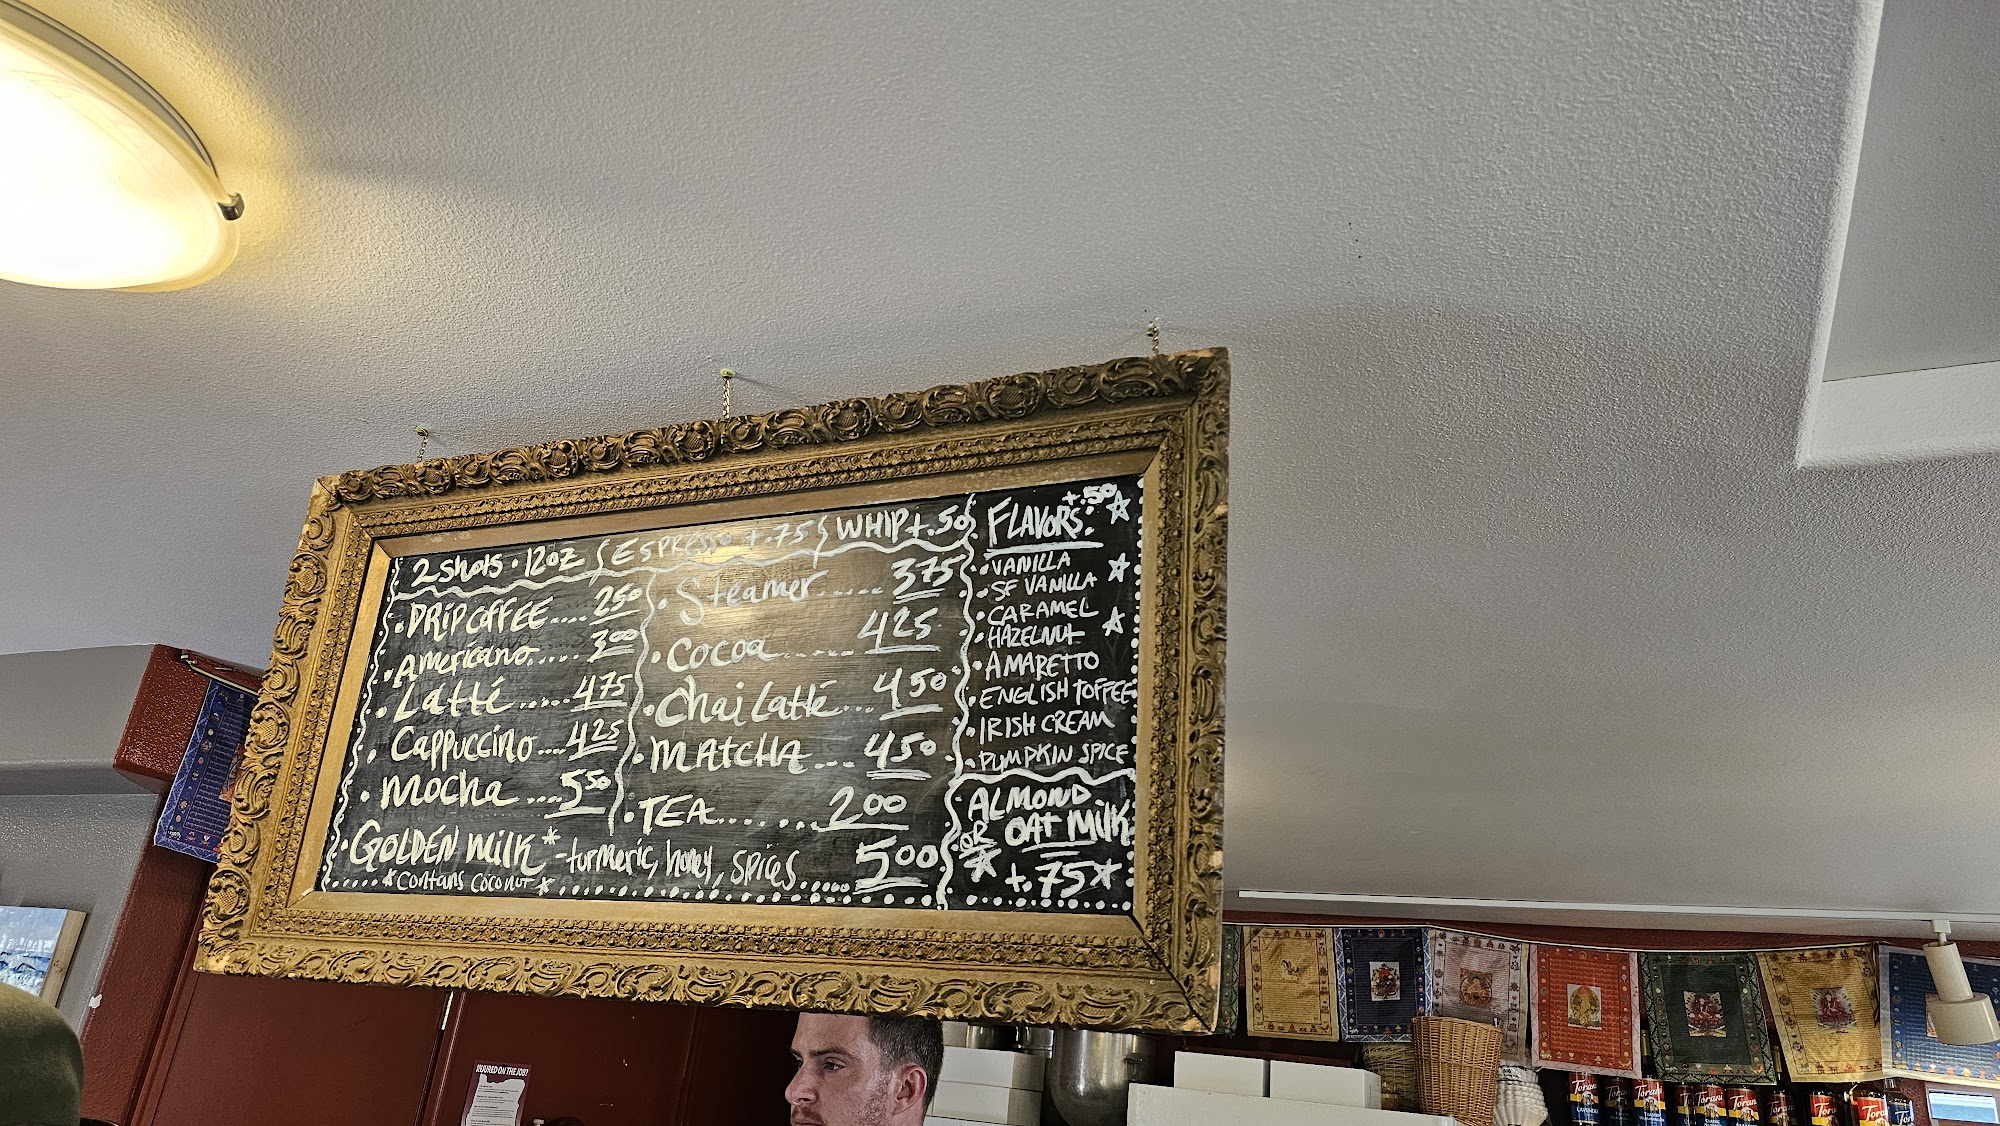 2 shots • 12oz
ESPRESSO +.75
WHIP +.50
• DRIP COFFEE.... 2.50
• Americano..... 3.00
• Latté...... 475
• Cappuccino.... 425
• mocha .... 5.50
• Steamer..... 375
• Cocoa....... 425
• Chai Latté... 450
• MATCHA... 450
• TEA....... 2.00
• GOLDEN MILK* - turmeric, honey, spices..... 5.00
*contains coconut*
FLAVORS: +.50
• VANILLA
• SF VANILLA
• CARAMEL
• HAZELNUT
• AMARETTO
• ENGLISH TOFFEE
• IRISH CREAM
• PUMPKIN SPICE
ALMOND
OR OAT MILK
+.75*
INJURED ON THE JOB?
Torani
Torani
Torani
Torani